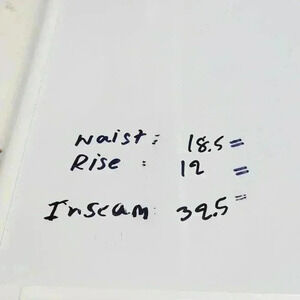 Waist: 18.5"
Rise : 12 "
Inseam: 32.5"